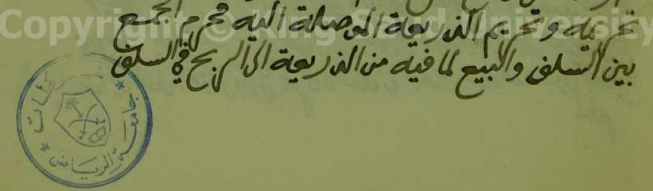 Copyright © King Saud University
تحريمه وتحريم الذريعة الموصلة اليه محرم الجمع
بين السلف والبيع لما فيه من الذريعة الى الربح في السلف
جامعة الرياض